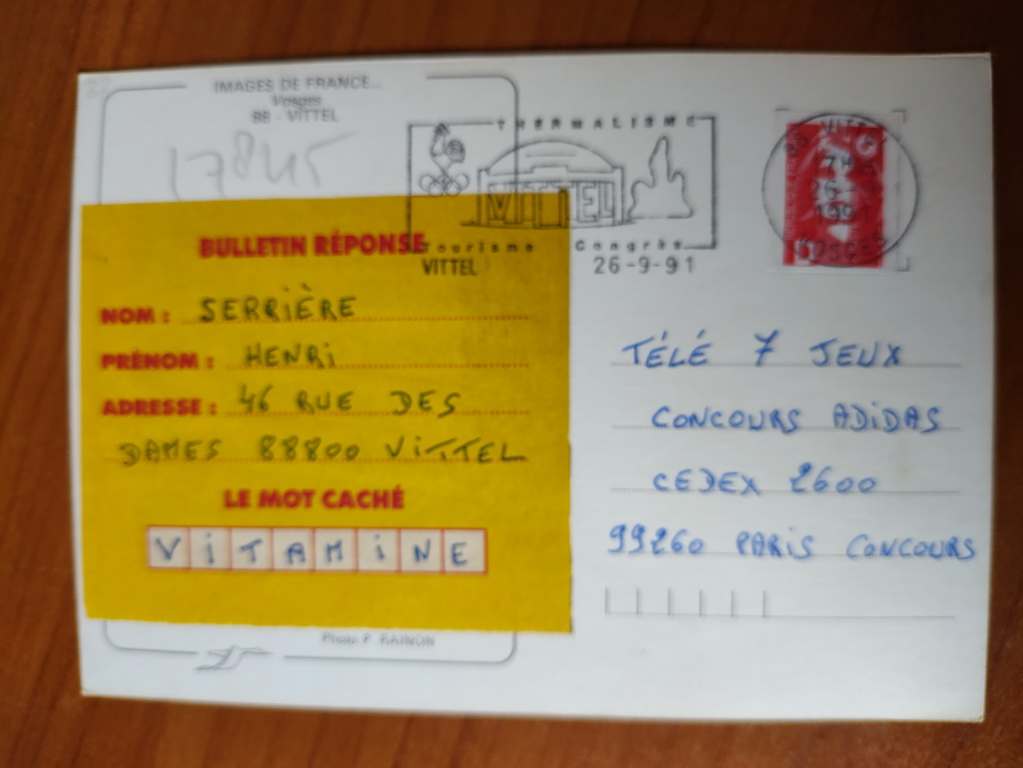 IMAGES DE FRANCE...
Vosges
88 - VITTEL
17845
THERMALISME
VITTEL
Tourisme Congrès
VITTEL 26-9-91
88 VITTEL
7H
26
VOSGES
BULLETIN RÉPONSE
NOM : SERRIÈRE
PRÉNOM : HENRI
ADRESSE : 46 RUE DES
DAMES 88800 VITTEL
LE MOT CACHÉ
VITAMINE
TÉLÉ 7 JEUX
CONCOURS ADIDAS
CEDEX 2600
99260 PARIS CONCOURS
Photo P. RAINON